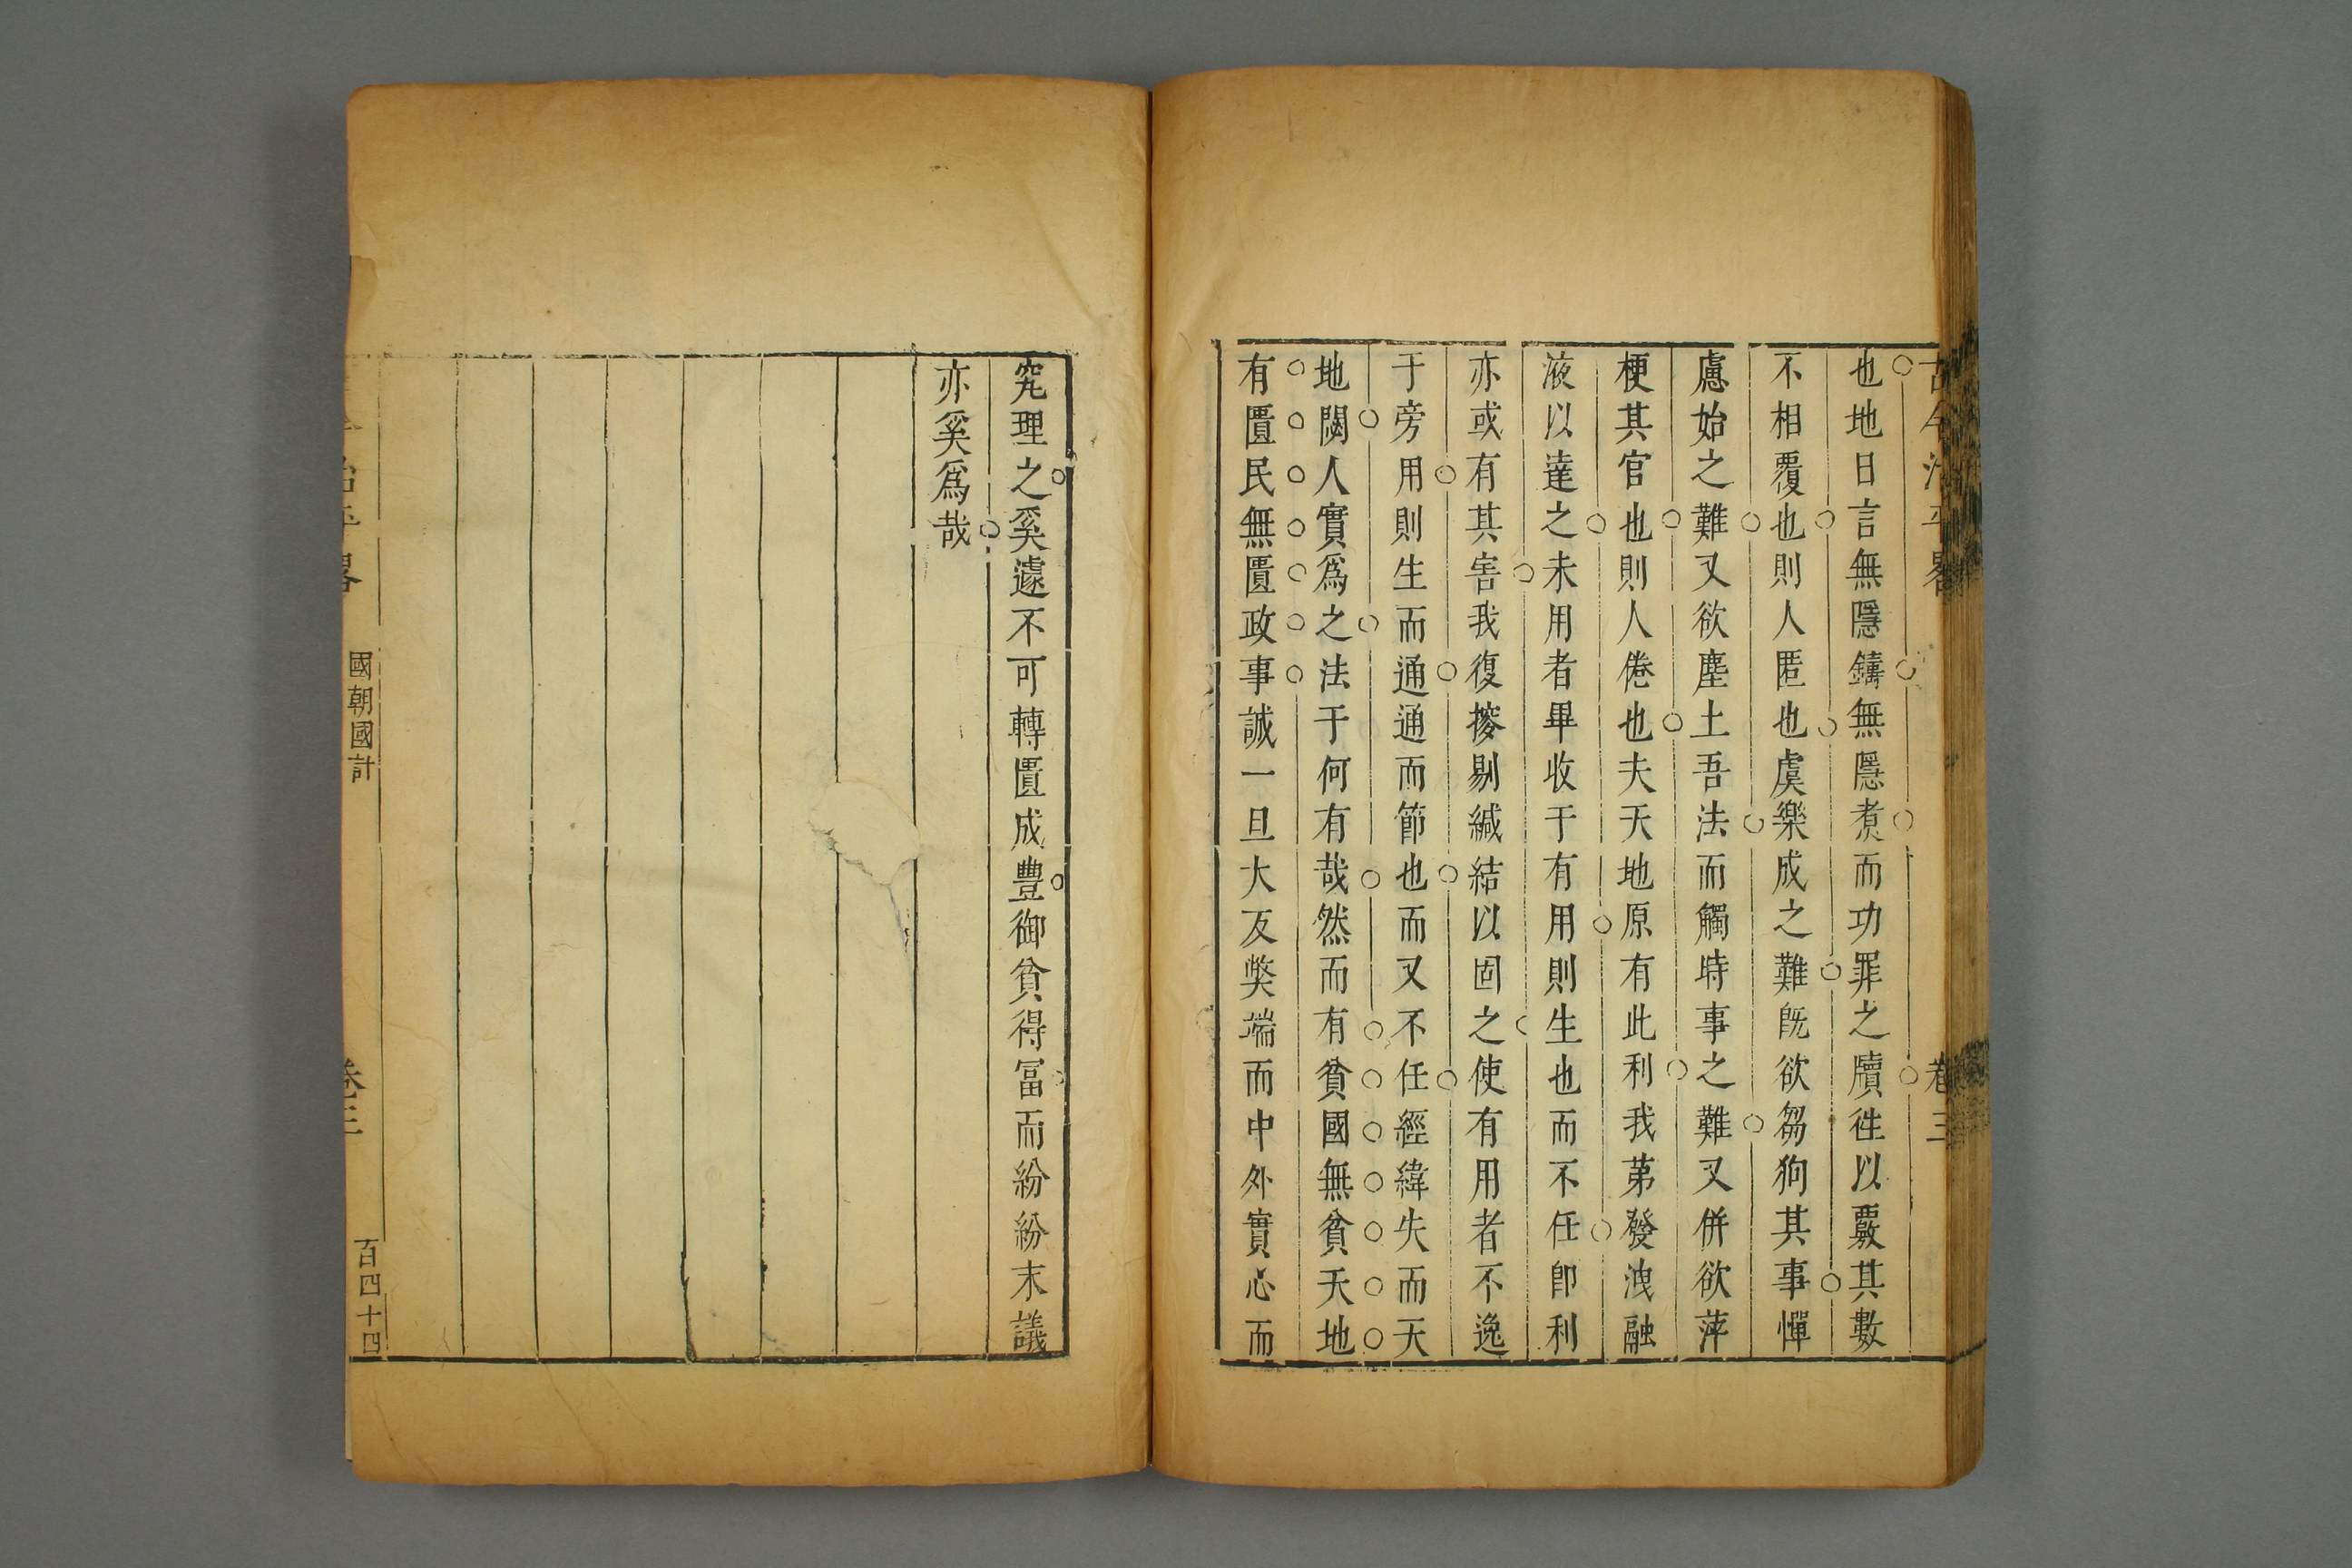 古今治平畧
卷三
也地日言無隱鑄無隱煮而功罪之牘徃以覈其數
不相覆也則人匿也虞樂成之難旣欲芻狗其事憚
慮始之難又欲塵土吾法而觸時事之難又併欲萍
梗其官也則人倦也夫天地原有此利我苐發洩融
液以達之未用者畢收于有用則生也而不任卽利
亦或有其害我復摉剔緘結以固之使有用者不逸
于旁用則生而通通而節也而又不任經緯失而天
地閼人實爲之法于何有哉然而有貧國無貧天地
有匱民無匱政事誠一旦大反獘端而中外實心而
究理之奚遽不可轉匱成豐御貧得冨而紛紛末議
亦奚爲哉
治平畧
國朝國計
卷三
百四十四